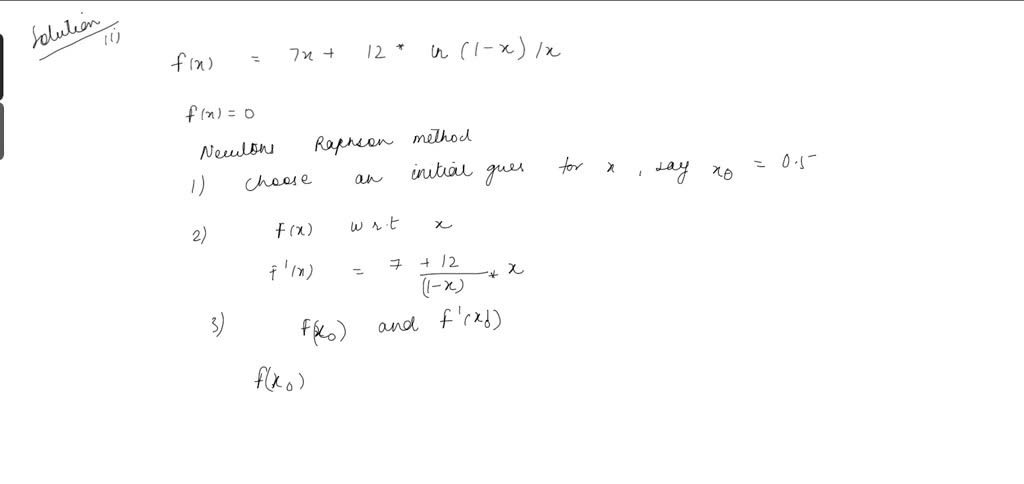 Solution
(i)
f(x) = 7x + 12 * ln (1-x) /x
f(x) = 0
Newtons Raphson method
1) choose an initial gues for x , say x0 = 0.5
2) f(x) w r.t x
f'(x) = 7 + 12 / (1-x) * x
3) f(x0) and f'(x0)
f(x0)